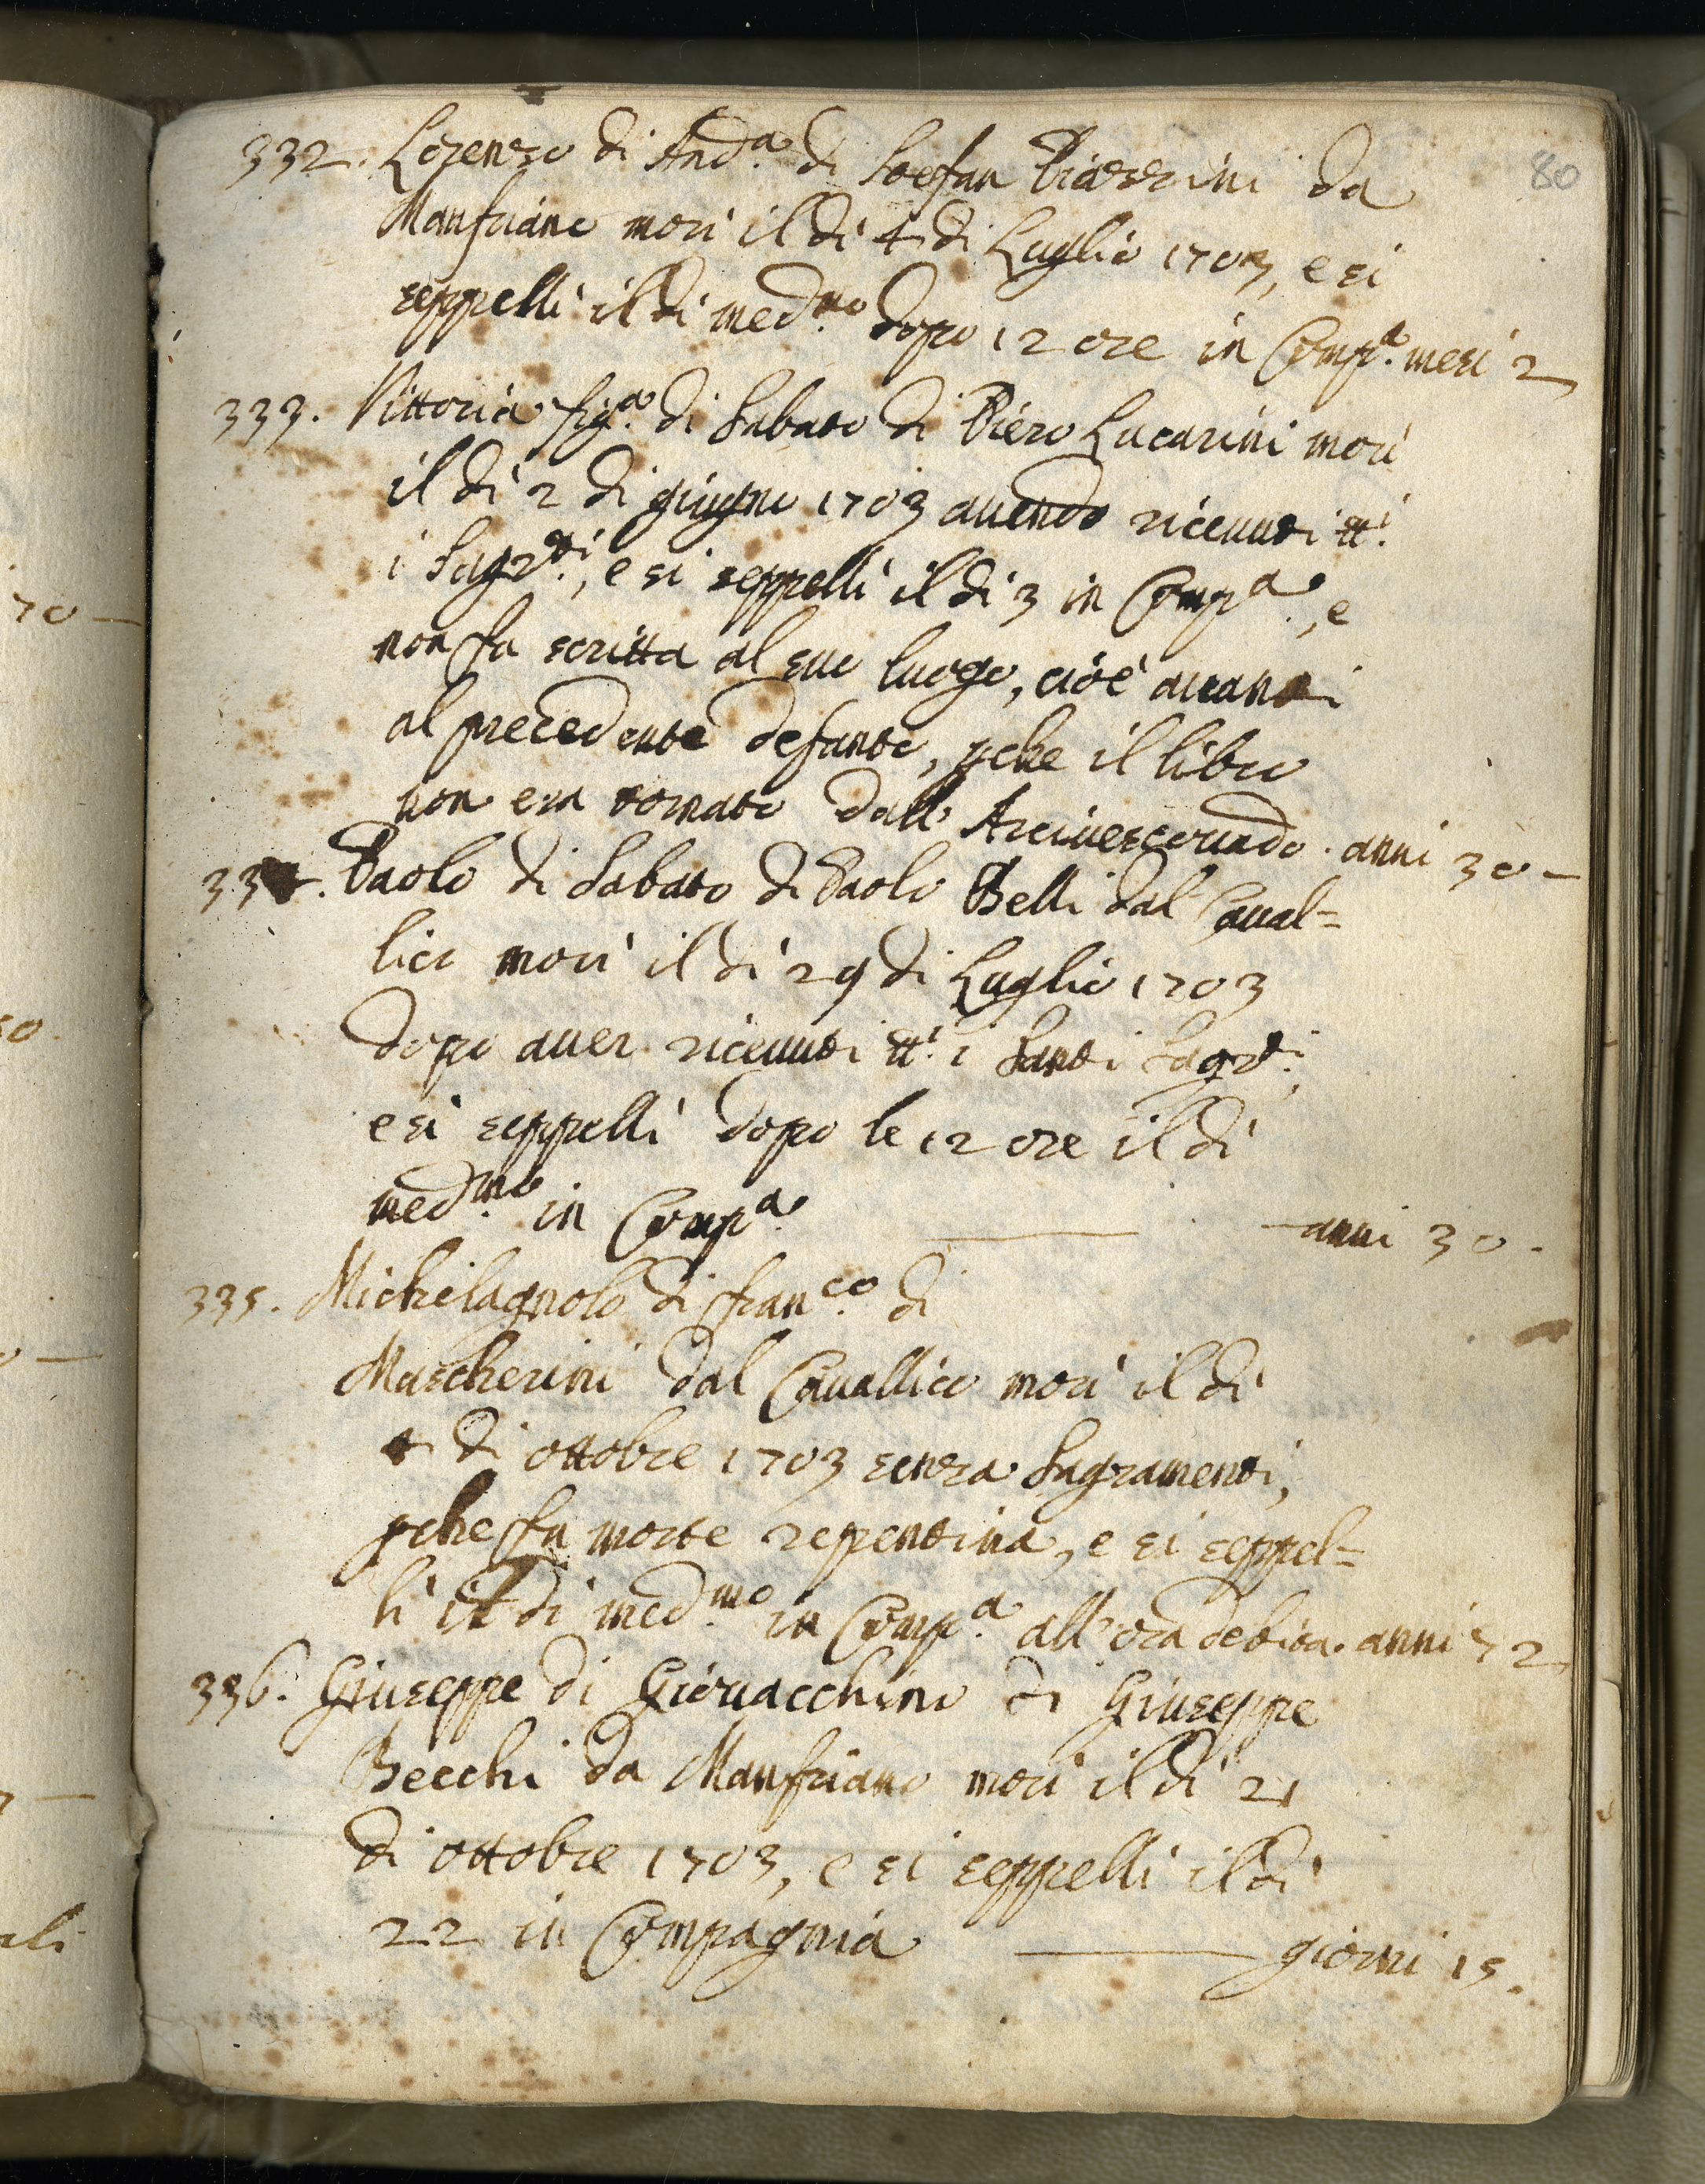 80
332. Lorenzo di And.ª di Stefan Piazzini da
Manfriano morì il dì 4 di Luglio 1703, e si
seppellì il dì med.mo dopo 12 ore in Comp.ª mesi 2
333. Vittoria fig.ª di Sabato di Piero Lucarini morì
il dì 2 di giugno 1703 avendo ricevuti tt.i
i Sagr.ti, e si seppellì il dì 3 in Comp.ª, e
non fu scritta al suo luogo, cioè avanti
al precedente defunto, pche il libro
non era tornato dall' Arcivescovado. anni 30 –
334. Paolo di Sabato di Paolo Belli dal Caval=
lico morì il dì 29 di Luglio 1703
dopo aver ricevuti tt.i i Santi Sagr.ti,
e si seppellì dopo le 12 ore il dì
med.mo in Comp.ª — anni 30.
335. Michelagnolo di Fran.co di
Mascherini dal Cavallico morì il dì
4 di ottobre 1703 senza Sagramenti,
pche fu morte repentina, e si seppel=
lì il dì med.mo in Comp.ª all' ora debita. anni 72
336. Giuseppe di Giovacchino di Giuseppe
Becchi da Manfriano morì il dì 21
di ottobre 1703, e si seppellì il dì
22 in Compagnia — giorni 15.
70 –
50.
ali